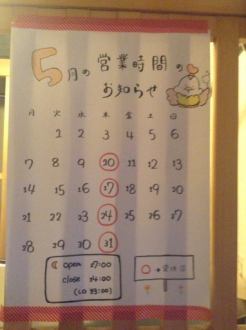 5月の営業時間の
お知らせ
月 火 水 木 金 土 日
1 2 3 4 5 6
7 8 9 10 11 12 13
14 15 16 17 18 19 20
21 22 23 24 25 26 27
28 29 30 31
open 17:00
close 24:00
(LO 23:00)